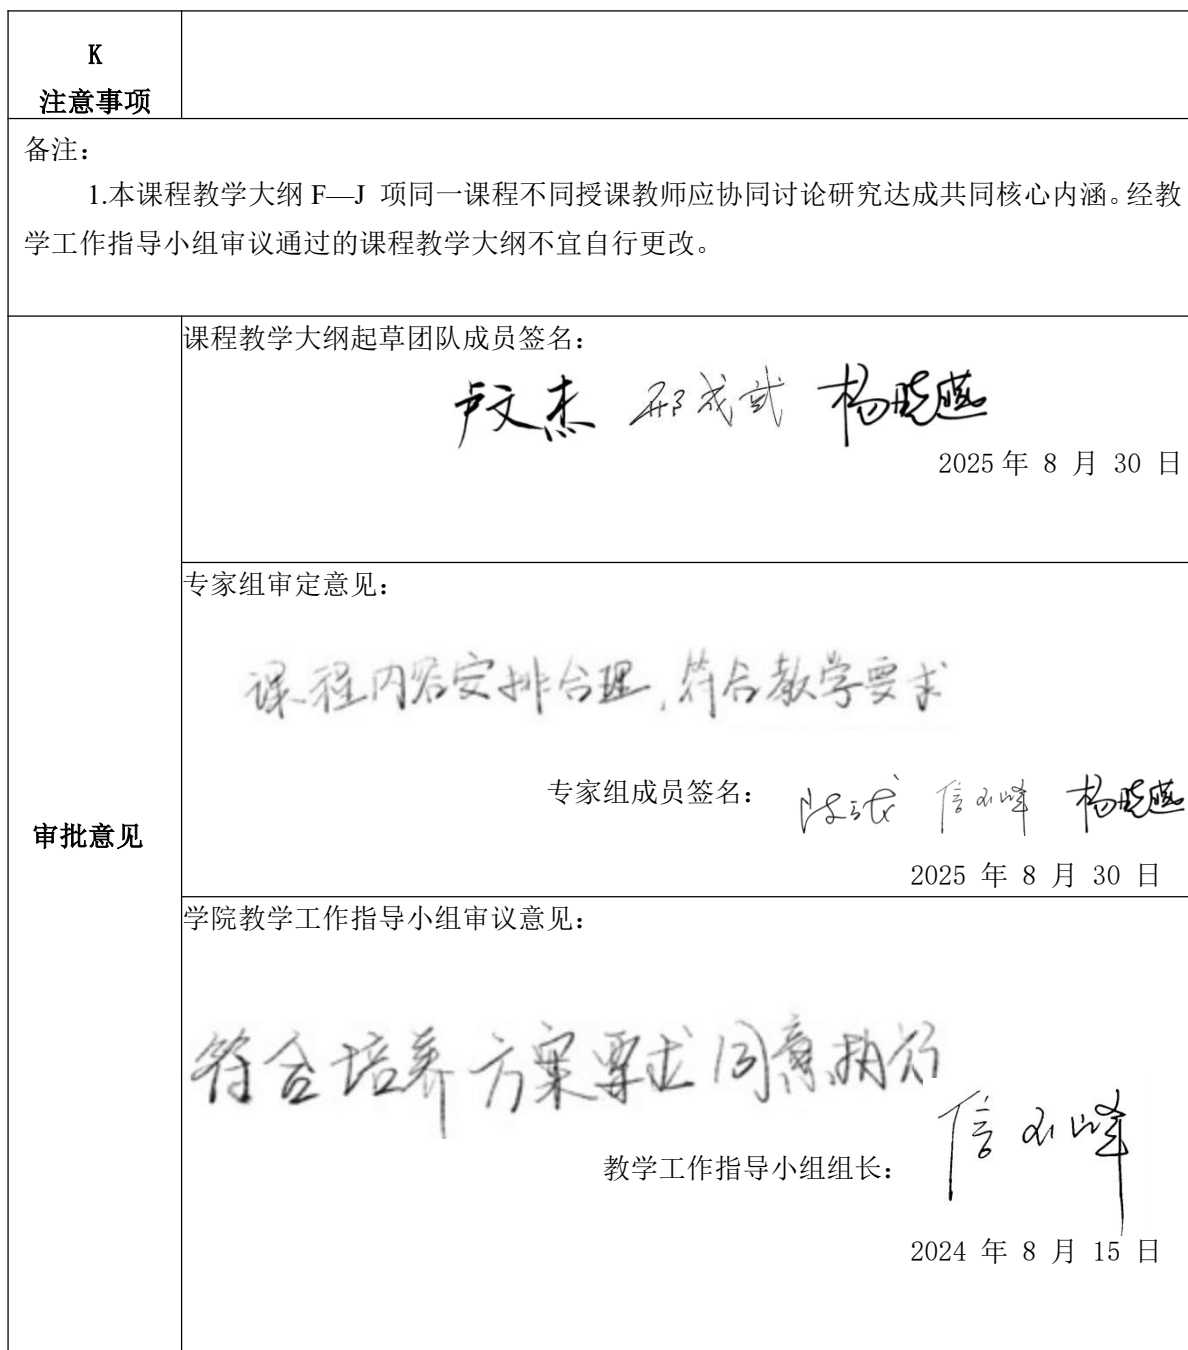 K
注意事项
备注：
1.本课程教学大纲 F—J 项同一课程不同授课教师应协同讨论研究达成共同核心内涵。经教
学工作指导小组审议通过的课程教学大纲不宜自行更改。
审批意见
课程教学大纲起草团队成员签名：
卢文杰 邢成武 杨晓燕
2025年 8 月 30 日
专家组审定意见：
课程内容安排合理,符合教学要求
专家组成员签名： 杨晓燕
2025 年 8 月 30 日
学院教学工作指导小组审议意见：
符合培养方案要求 同意执行
教学工作指导小组组长：
2024 年 8 月 15 日